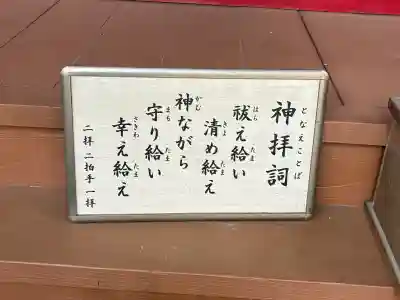 神拝詞
となえことば
祓え給い
はら たま
清め給え
きよ たま
神ながら
かむ
守り給い
まも たま
幸え給え
さきわ たま
二拝 二拍手 一拝